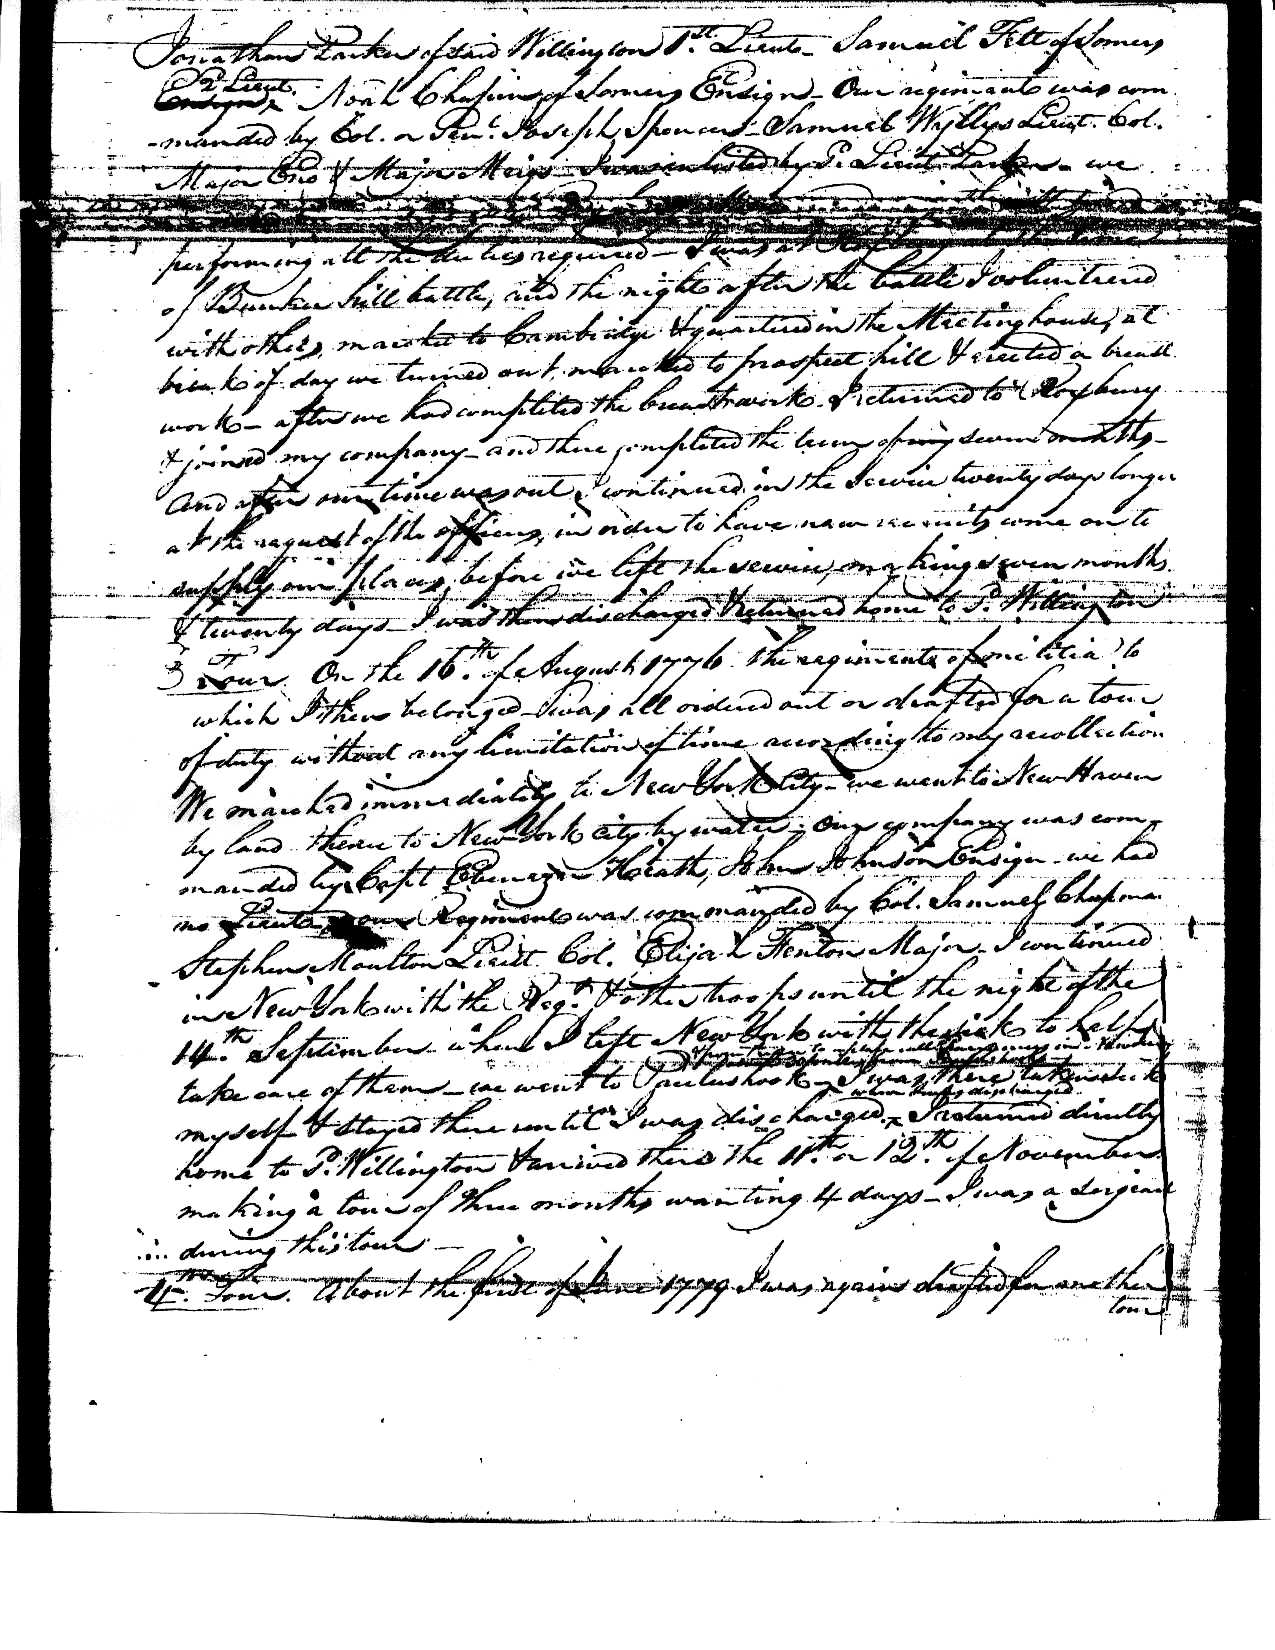 Jonathan Parker of said Willington 1st. Lieut - Samuel Felt of Somers
2d Lieut.
Ensign Noah Chapin of Somers Ensign - Our regiment was com
-manded by Col. or Genl. Joseph Spencer - Samuel Wyllys Lieut. Col.
Major Eno & Major Meigs - I was enlisted by Sd. Lieut. Parker - we
performing all the duties required - I was at Roxbury at the time
of Bunker hill battle, and the night after the battle I volunteered
with others, marched to Cambridge & quartered in the Meeting house, at
break of day we turned out, marched to prospect hill & erected a breast
work - after we had completed the breastwork I returned to Roxbury
& joined my company - and there completed the term of my seven months -
And after our time was out I continued in the service twenty days longer
at the request of the officers, in order to have new recruits come on to
supply our places, before we left the service, making seven months
& twenty days - I was then discharged & returned home to Sd. Willington
3 Tour. On the 16th. of August 1776 the regiment of militia to
which I then belonged - was all ordered out or drafted for a tour
of duty without any limitation of time according to my recollection
We marched immediately to New York City - we went to New Haven
by land thence to New York city by water - our company was com-
manded by Capt Ebenezer Heath, John Johnson Ensign - we had
no Lieut, our Regiment was commanded by Col. Samuel Chapman
Stephen Moulton Lieut. Col. Elijah Fenton Major - I continued
in New York with the Regt. & other troops until the night of the
14th. September when I left New York with the sick to help
take care of them - we went to Paulushook - I was there taken sick
when I was discharged
myself & stayed there until I was discharged. I returned directly
home to Sd. Willington & arrived there the 11th. or 12th. of November
making a tour of three months wanting 4 days - I was a Sergeant
during this tour -
4th. Tour. About the first of June 1779 I was again drafted for another
tour